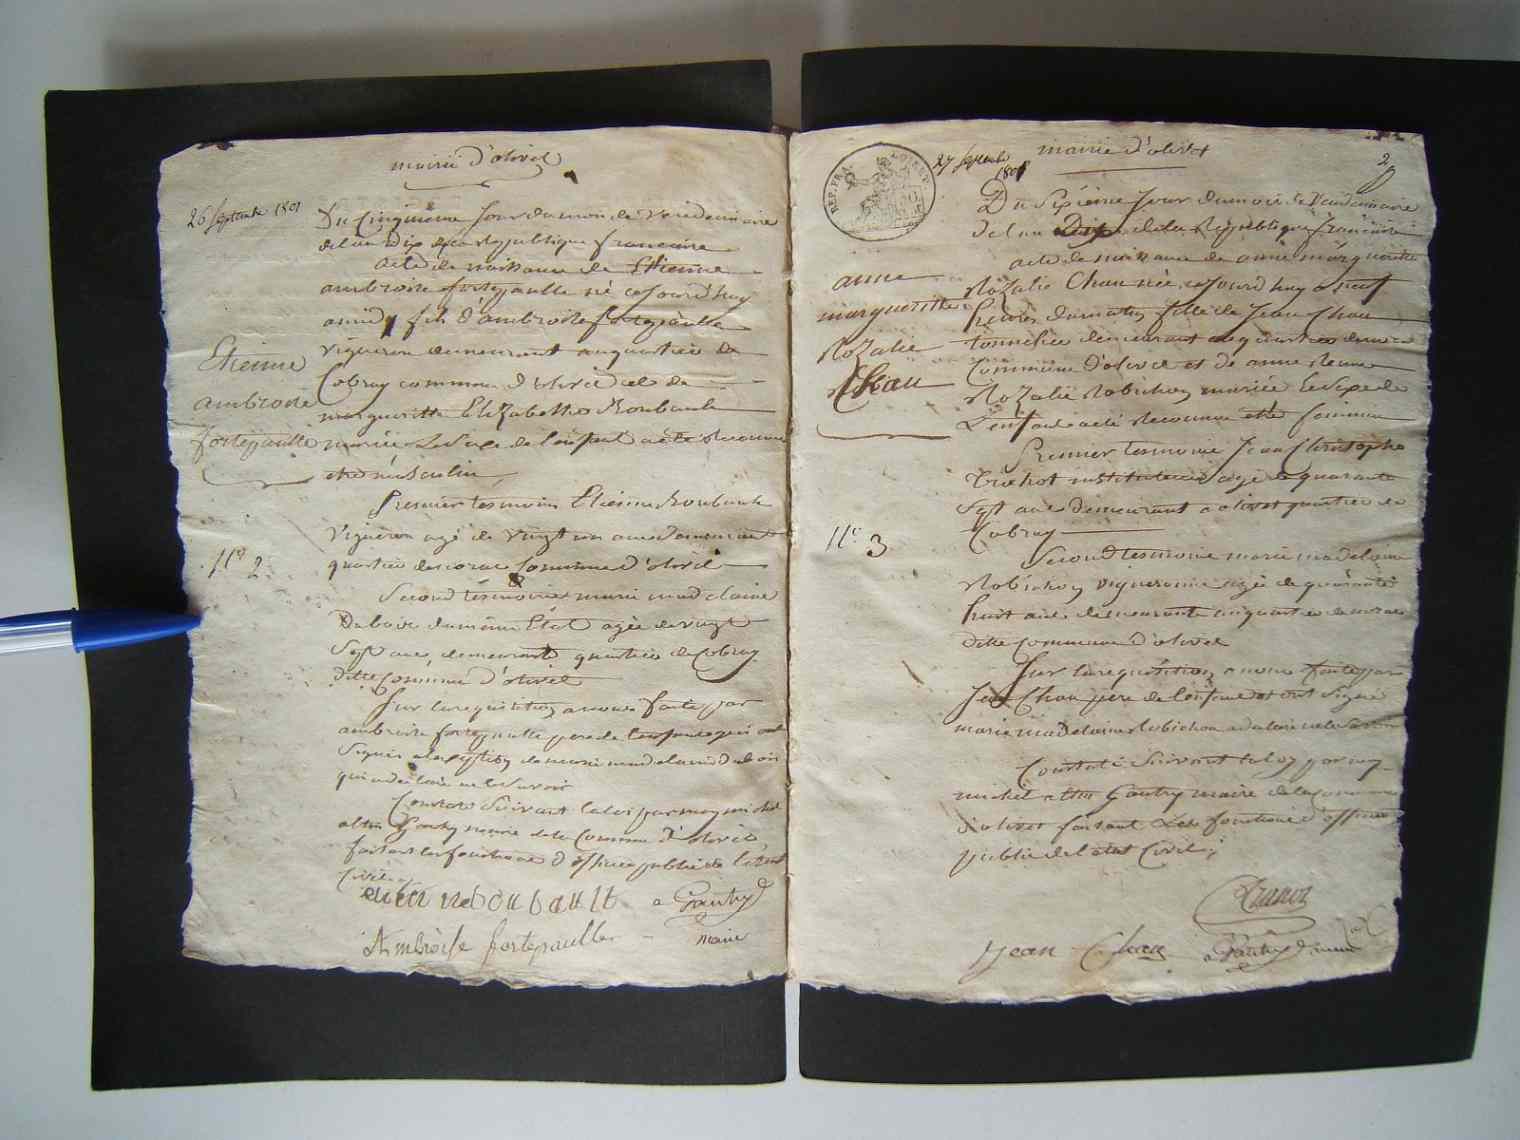 mairie d'olivet
26 Septembre 1801
Du Cinquieme jour du mois de Vendemiaire
de l'an Dix de la Republique francaise
acte de naissance de Etienne
ambroise fortepaulle né ce jourd'huy
a midy fils d'ambroise fortepaulle
Vigneron demeurant au quartier de
Cobray commune d'olivet et de
margueritte Elizabette Roubault
mariée Le Sexe de l'enfant a été Reconnu
etre masculin
Etienne
ambroise
fortepaulle
Premier tesmoin Etienne Roubault
Vigneron agé de vingt un ans demeurant
quartier du commune d'olivet
Nº 2
Second tesmoin marie madelaine
Dubois du même Etat agée de vingt
Sept ans, demeurant quartier de Cobray
ditte Commune d'olivet
Sur la requisition a nous faite par
ambroise fortepaulle pere de l'enfant qui ont
Signés a l'exeption de marie madelaine Dubois
qui a declaré ne le Savoir
Constaté Suivant la loi par moy michel
altin Gautry maire de la Commune d'olivet
faisant les fonctions d'officier public de l'état
Civil
etien rebou bault a Gautry
Ambroise fortepaulle maire
REP. FRA. LOIRET
27 Septembre
1801
mairie d'olivet
2
Du Septieme Jour du mois de Vendemiaire
de l'an Dix de la Republique francaise
acte de naissance de anne margueritte
Rozalie Chau née ce jourd'huy a neuf
heures du matin fille de Jean Chau
tonnelier demeurant au quartier du
Commune d'olivet et de anne
Rozalie Robichon mariée Le Sexe de
L'enfant a été Reconnu etre feminin
anne
margueritte
Rozalie
Chau
Premier tesmoin Jean Christophe
instituteur agé de quarante
Sept ans demeurant a olivet quartier de
Cobray
Nº 3
Second tesmoin marie madelaine
Robichon vigneronne agée de quarante
huit ans demeurante au quartier du
ditte Commune d'olivet
Sur la requisition a nous faite par
Jean Chau pere de l'enfant et ont Signé
marie madelaine Robichon a declaré ne le Savoir
Constaté Suivant la loy par moy
michel altin Gautry maire de la Commune
d'olivet faisant les fonctions d'officier
public de l'etat Civil
Jean Chau a Gautry maire